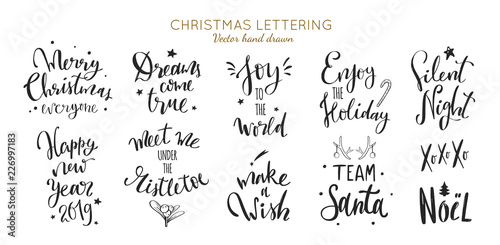 CHRISTMAS LETTERING
Vector hand drawn
Merry
Christmas
everyone
Dreams
come
true
Joy
TO THE
World
Enjoy
THE
Holiday
Silent
Night
Happy
new
Year
2019
meet me
UNDER
THE
Mistletoe
make
a
Wish
TEAM
Santa
XoXoXo
NOËL
Adobe Stock | #226997183